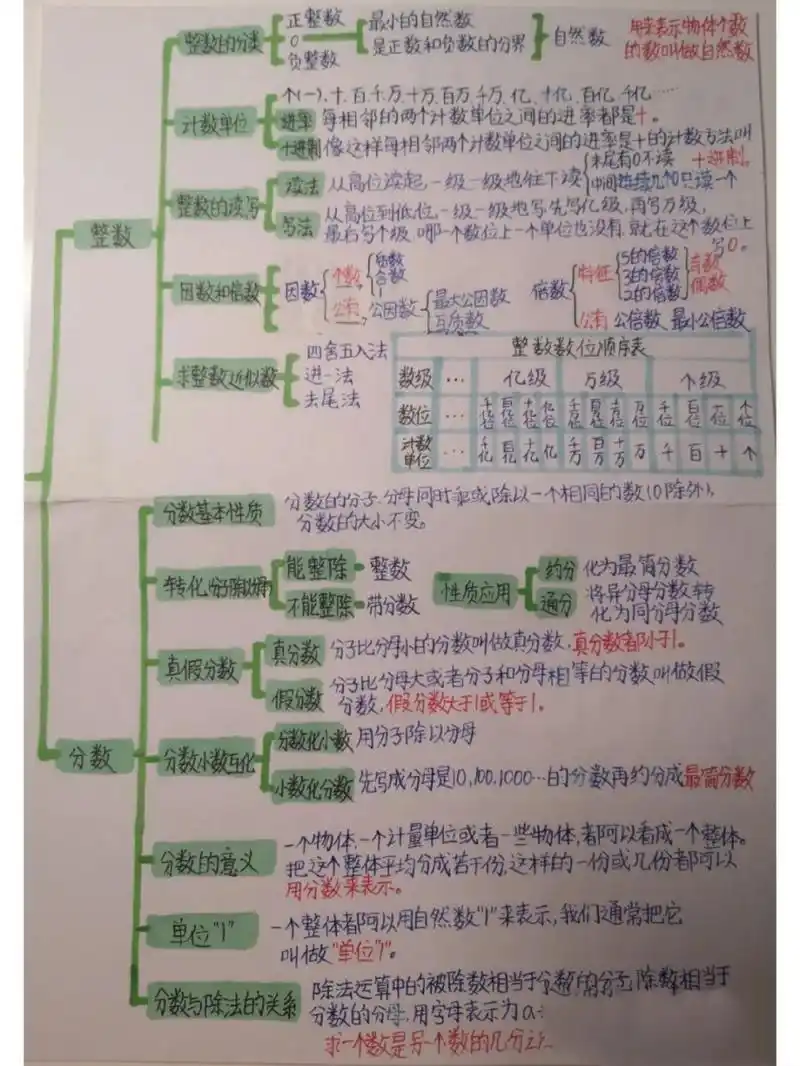 整数
整数的分类
正整数
0
负整数
最小的自然数
是正数和负数的分界
自然数
用来表示物体个数
的数叫做自然数
计数单位
个(一)、十、百、千、万、十万、百万、千万、亿、十亿、百亿、千亿……
进率 每相邻的两个计数单位之间的进率都是十。
十进制 像这样每相邻两个计数单位之间的进率是十的计数方法叫
十进制。
整数的读写
读法 从高位读起,一级一级地往下读
末尾有0不读
中间连续几个0只读一个
写法 从高位到低位,一级一级地写,先写亿级,再写万级,
最后写个级,哪一个数位上一个单位也没有,就在这个数位上
写0。
因数和倍数
因数
个数
质数
合数
1
公有 公因数
最大公因数
互质数
倍数
特征
5的倍数
3的倍数
2的倍数
奇数
偶数
公有 公倍数 最小公倍数
求整数近似数
四舍五入法
进一法
去尾法
整数数位顺序表
数级 … 亿级 万级 个级
数位 … 千亿位 百亿位 十亿位 亿位 千万位 百万位 十万位 万位 千位 百位 十位 个位
计数单位 … 千亿 百亿 十亿 亿 千万 百万 十万 万 千 百 十 个
分数
分数基本性质
分数的分子、分母同时乘或除以一个相同的数(0除外),
分数的大小不变。
转化(分子除以分母)
能整除 - 整数
不能整除 - 带分数
性质应用
约分 化为最简分数
通分 将异分母分数转
化为同分母分数
真假分数
真分数 分子比分母小的分数叫做真分数,真分数都小于1。
假分数 分子比分母大或者分子和分母相等的分数叫做假
分数,假分数大于1或等于1。
分数小数互化
分数化小数 用分子除以分母
小数化分数 先写成分母是10,100,1000…的分数再约分成最简分数
分数的意义
一个物体,一个计量单位或者一些物体,都可以看成一个整体。
把这个整体平均分成若干份,这样的一份或几份都可以
用分数来表示。
单位"1"
一个整体都可以用自然数"1"来表示,我们通常把它
叫做"单位1"。
分数与除法的关系
除法运算中的被除数相当于分数的分子,除数相当于
分数的分母,用字母表示为a÷
求一个数是另一个数的几分之